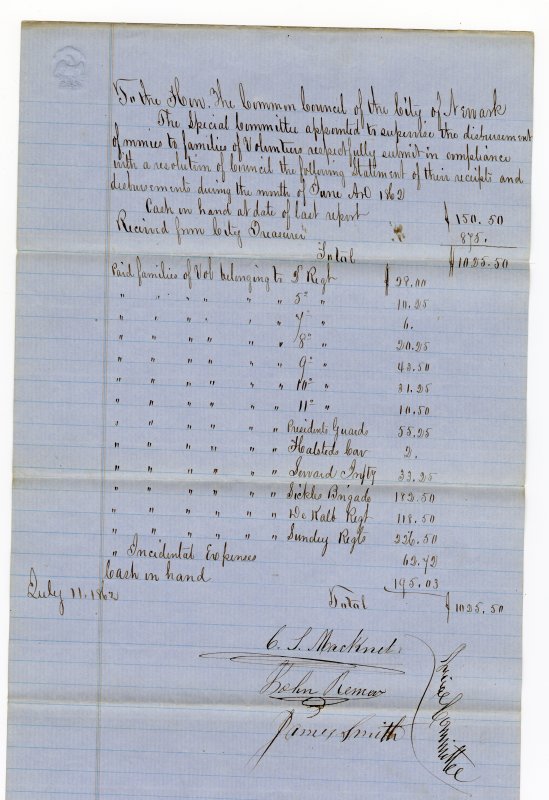 To the Hon. The Common Council of the City of Newark
The Special Committee appointed to supervise the disbursement
of monies to families of Volunteers respectfully submit in compliance
with a resolution of Council the following Statement of their receipts and
disbursements during the month of June AD 1862
Cash on hand at date of last report $150.50
Received from City Treasurer 875.
Total $1025.50
Paid families of Vol belonging to Regt $28.00
" " " " " " 5th " 10.25
" " " " " " 7th " 6.
" " " " " " 8th " 20.25
" " " " " " 9th " 43.50
" " " " " " 10th " 31.25
" " " " " " 11th " 10.50
" " " " " " Presidents Guards 55.25
" " " " " " Halsteds Cav 2.
" " " " " " Seward Infty 33.25
" " " " " " Sickles Brigade 182.50
" " " " " " De Kalb Regt 118.50
" " " " " " Sundry Regts 226.50
" Incidental Expenses 62.72
Cash in hand 195.03
July 11, 1862 Total $1025.50
C. S. Macknet
John Remer
James Smith
Committee